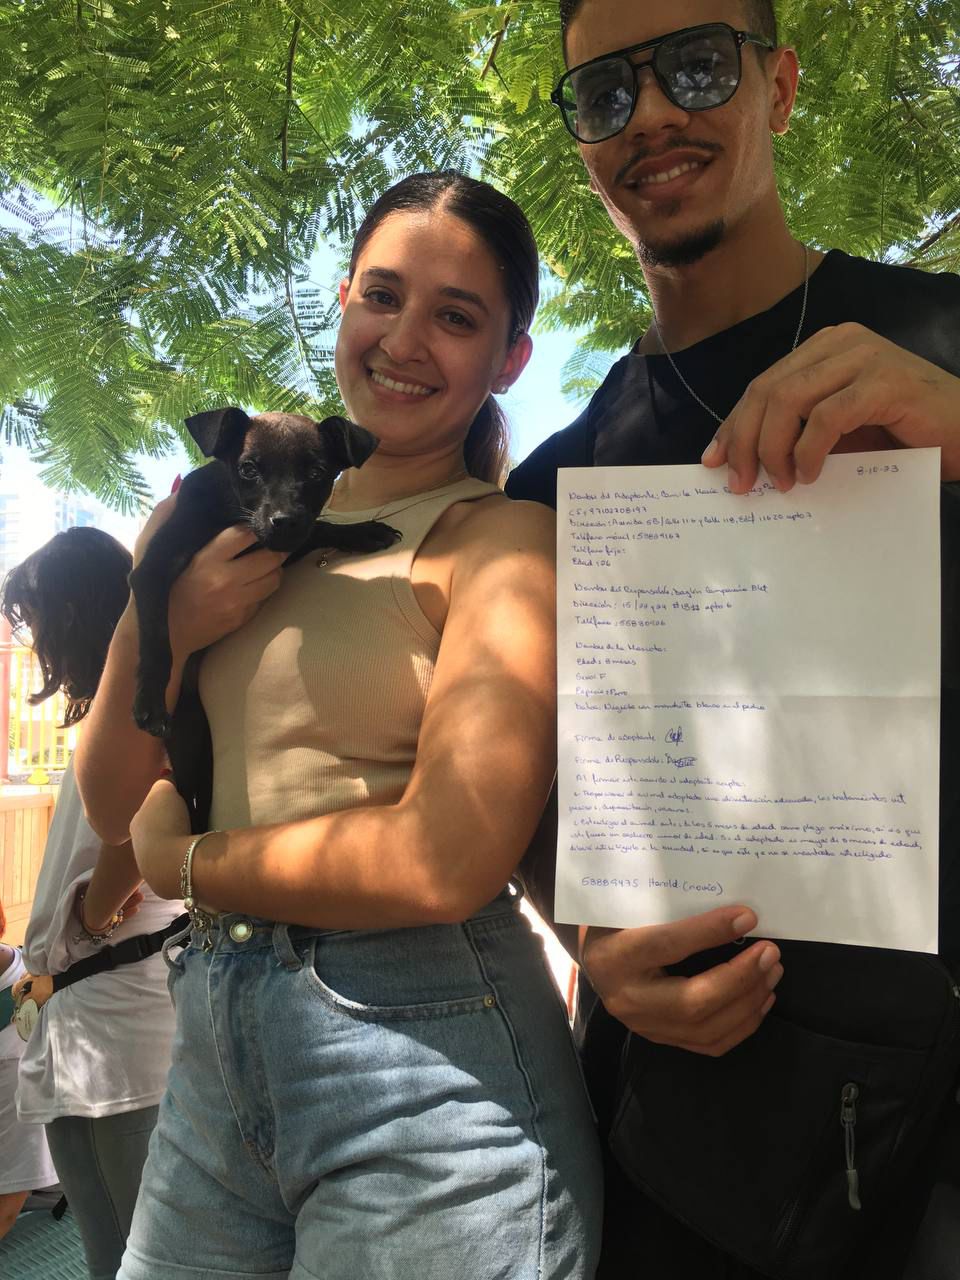 8-10-23
Nombre del Adoptante: Camila María
CI: 97102708197
Dirección: Avenida 5B / Calle 116 y Calle 118, Edif 11620 apto 7
Teléfono móvil: 58884167
Teléfono fijo:
Edad: 26
Nombre del Responsable:
Dirección: 15 / 22 y 24 apto 6
Teléfono:
Nombre de la Mascota:
Edad: meses
Sexo: F
Especie: Perro
Negrito un manchita blanca en el pecho
Firma de adoptante:
Firma de Responsable:
Al firmar este acuerdo el adoptante acepta:
Proporcionar al animal adoptado una alimentación adecuada, los tratamientos vet
desparasitación, vacunas.
Esterilizar al animal antes de los meses de edad como plazo máximo, si es que
un cachorro menor de edad. Si el adoptado es mayor de meses de edad,
deberá esterilizarlo a la brevedad, si es que este ya no se encontraba esterilizado.
58884475 Harold (novio)